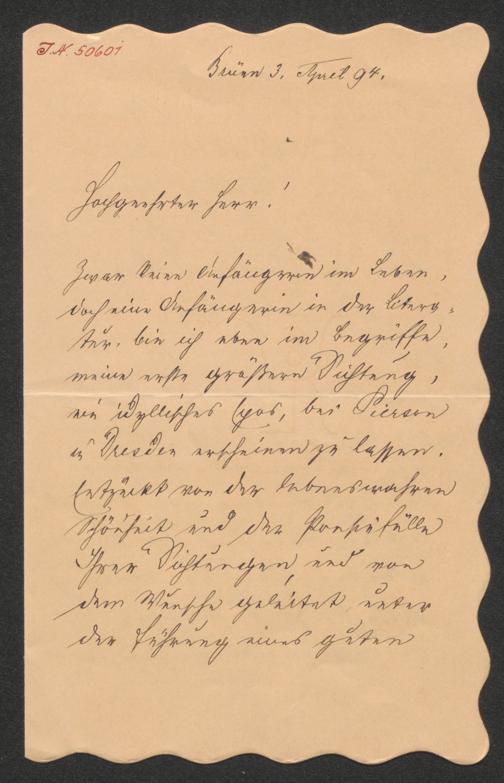 J.N. 50601
Brünn 3. April 94.
Hochgeehrter Herr!
Zwar keine Anfängerin im Leben,
doch eine Anfängerin in der Litera-
tur, bin ich eben im Begriffe,
meine erste größere Dichtung,
ein idyllisches Epos, bei Pierson
in Dresden erscheinen zu lassen.
Entzückt von der lebenswahren
Schönheit und der Poesiefülle
Ihrer Dichtungen, und von
dem Wunsche geleitet, unter
der Führung eines guten